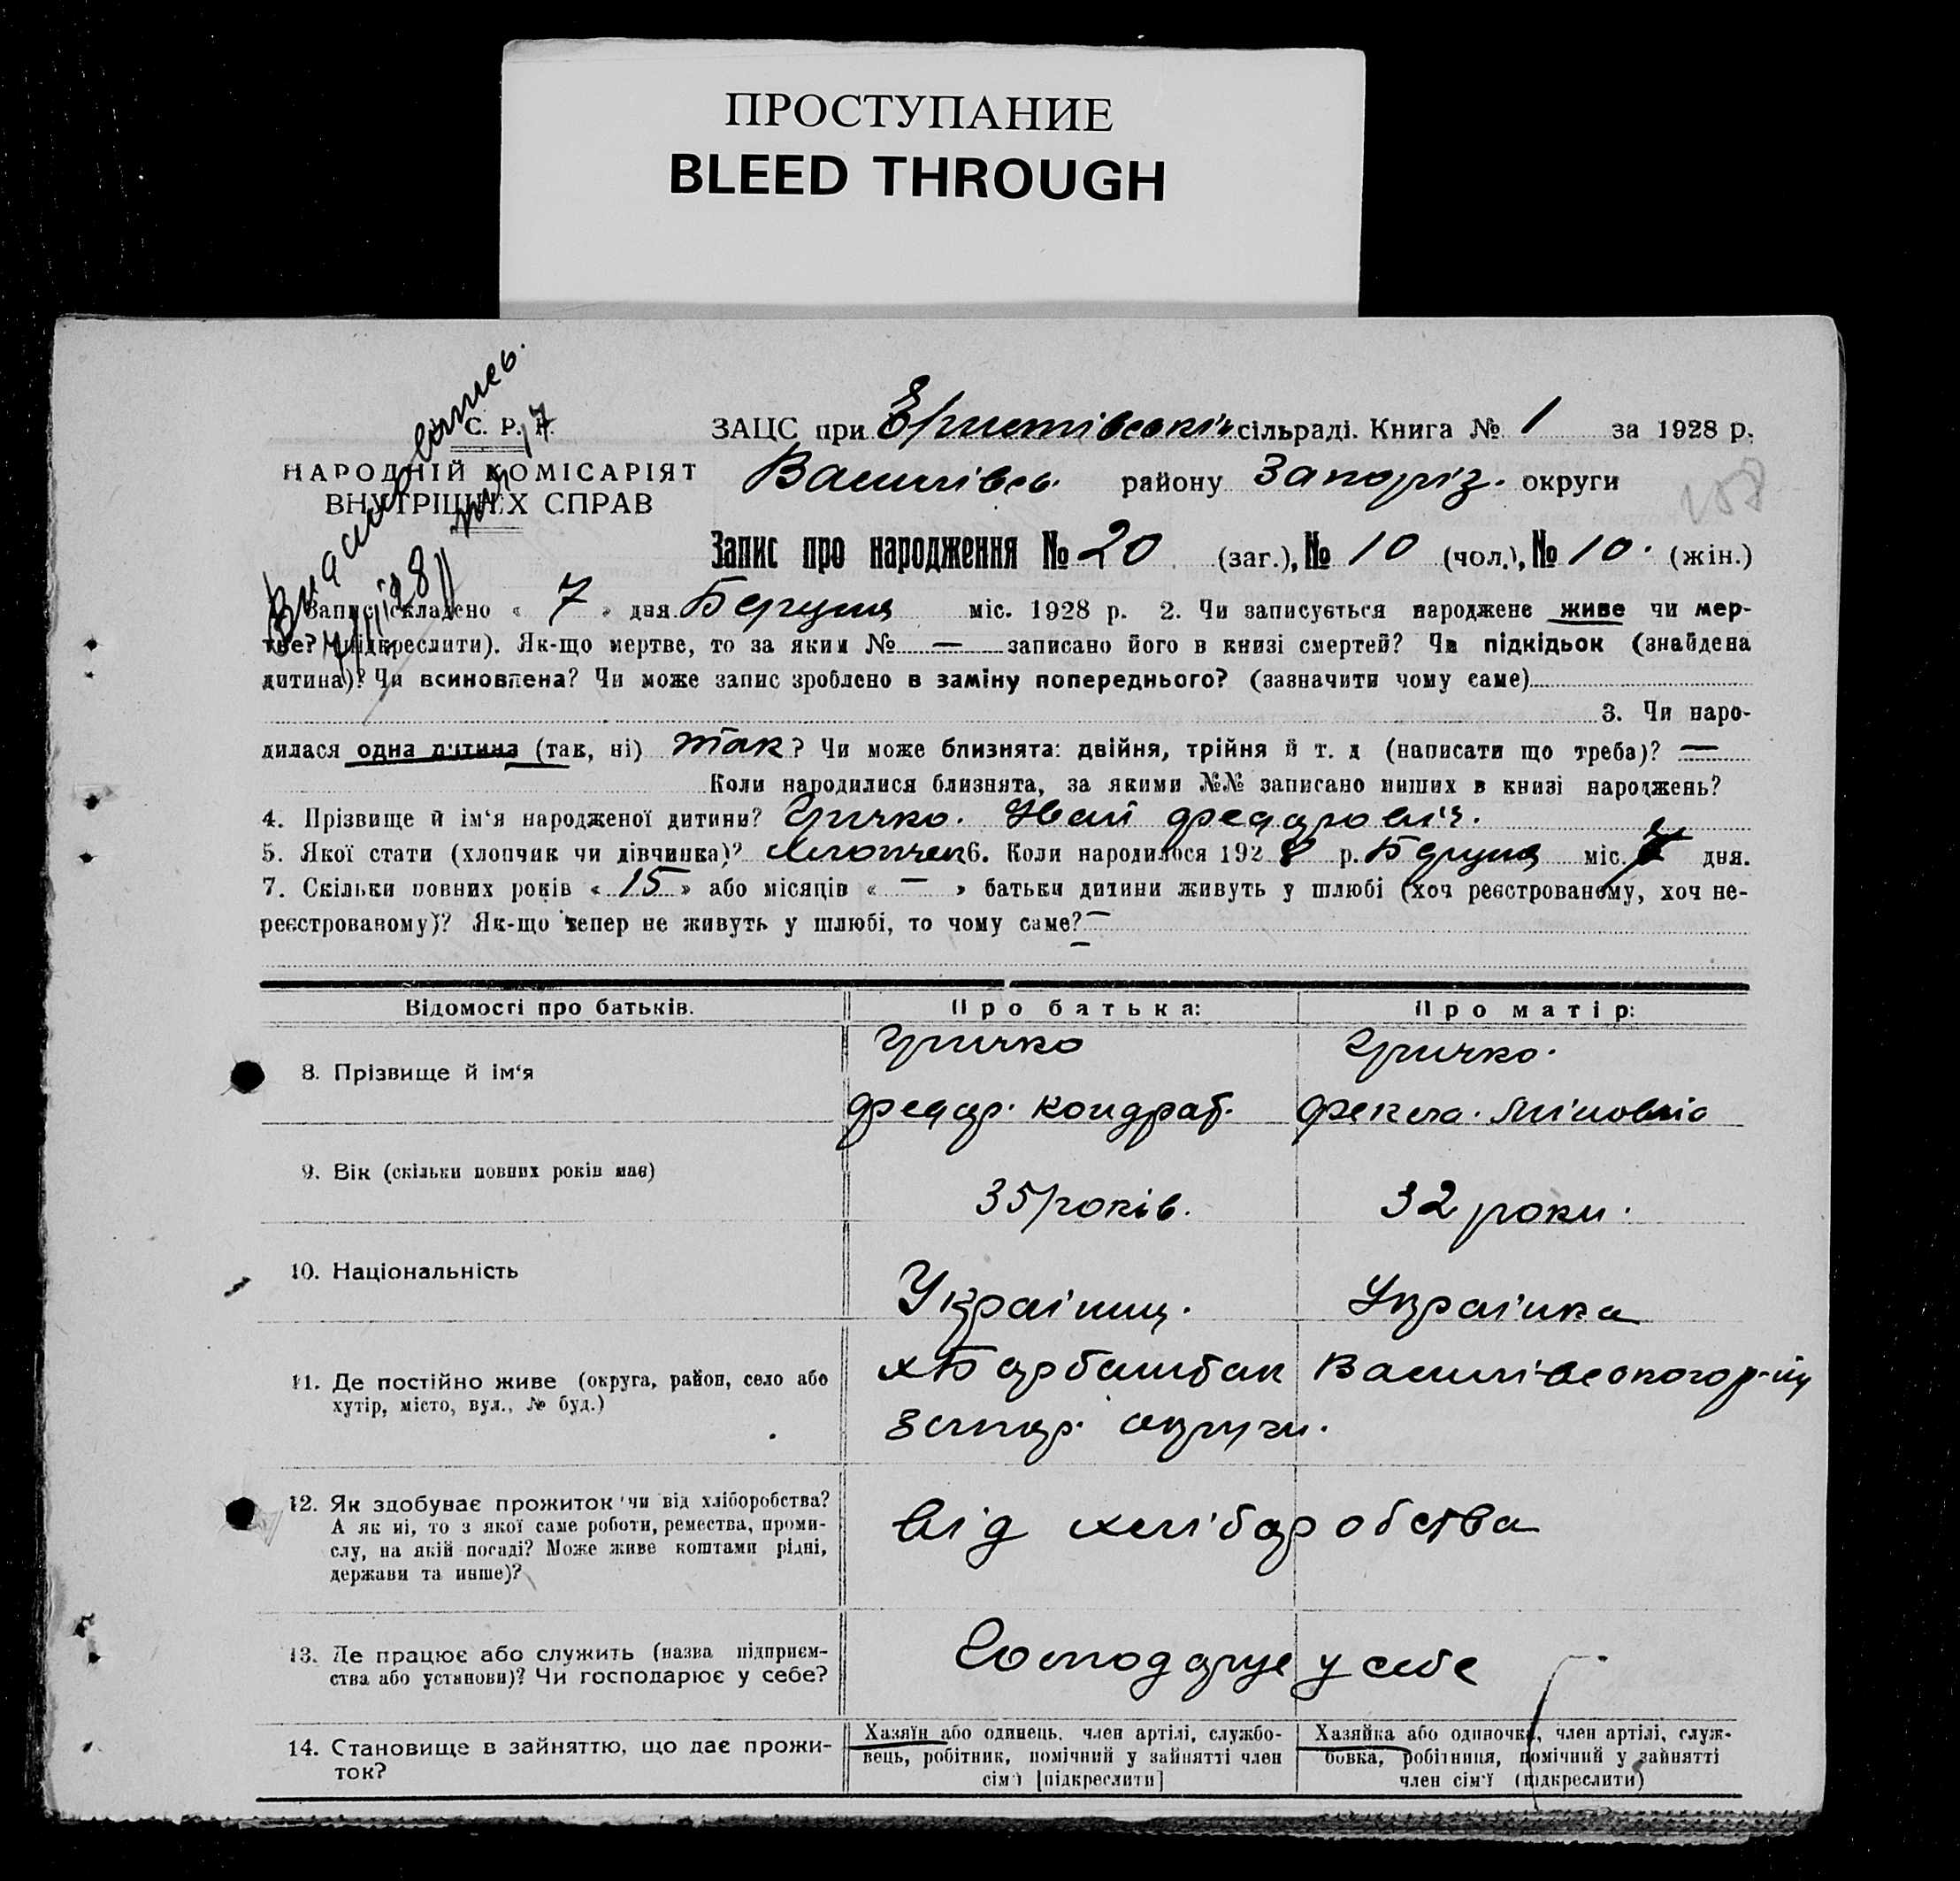 ПРОСТУПАНИЕ
BLEED THROUGH
С. Р. Р.
НАРОДНІЙ КОМІСАРІЯТ
ВНУТРІШНІХ СПРАВ
ЗАЦС при сільраді. Книга № 1 за 1928 р.
Василівсь. району Запоріз. округи
Запис про народження № 20 (заг.), № 10 (чол.), № 10. (жін.)
Запис складено « 7 » дня Берушя міс. 1928 р. 2. Чи записується народжене живе чи мер-
тве? (підкреслити). Як-що мертве, то за яким № — записано його в книзі смертей? Чи підкідьок (знайдена
дитина)? Чи всиновлена? Чи може запис зроблено в заміну попереднього? (зазначити чому саме)
3. Чи наро-
дилася одна дитина (так, ні) так? Чи може близнята: двійня, трійня й т. д (написати що треба)? —
Коли народилися близнята, за якими №№ записано инших в книзі народжень?
4. Прізвище й ім'я народженої дитини? Гричко. Іван Федорович.
5. Якої стати (хлопчик чи дівчинка)? Хлопчек 6. Коли народилося 1928 р. міс. дня.
7. Скільки повних років « 15 » або місяців « — » батьки дитини живуть у шлюбі (хоч реєстрованому, хоч не-
реєстрованому)? Як-що тепер не живуть у шлюбі, то чому саме? —
Відомості про батьків. Про батька: Про матір:
8. Прізвище й ім'я
Гричко Гричко.
Федор. Кондрат. Фекла.
9. Вік (скільки повних років має)
35 років. 32 роки.
10. Національність
Украінец. Украінка
11. Де постійно живе (округа, район, село або
хутір, місто, вул., № буд.)
Василівського р-ну
Запор. округи.
12. Як здобуває прожиток чи від хліборобства?
А як ні, то з якої саме роботи, ремества, проми-
слу, на якій посаді? Може живе коштами рідні,
держави та инше)?
від хліборобства
13. Де працює або служить (назва підприєм-
ства або установи)? Чи господарює у себе?
Господарує у себе
14. Становище в зайняттю, що дає прожи-
ток?
Хазяїн або одинець, член артілі, службо-
вець, робітник, помічний у зайнятті член
сім'ї [підкреслити]
Хазяйка або одиночка, член артілі, служ-
бовка, робітниця, помічний у зайнятті
член сім'ї (підкреслити)